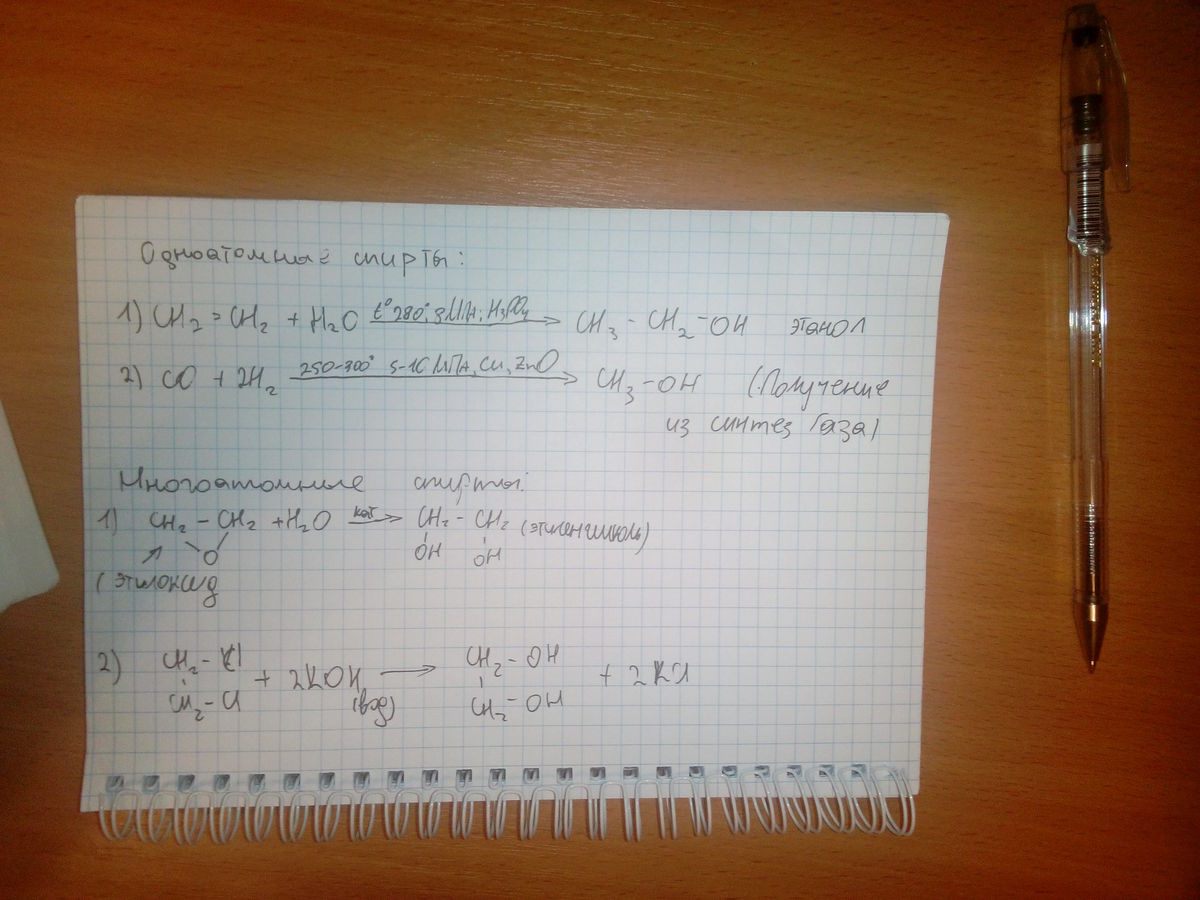 Одноатомные спирты:
1) CH₂=CH₂ + H₂O t° 280°, 8МПа, H₃PO₄ → CH₃-CH₂-OH этанол
2) CO + 2H₂ 250-300° 5-10 МПа, Cu, ZnO → CH₃-OH (Получение
из синтез газа)
Многоатомные спирты:
1) CH₂-CH₂ + H₂O кат → CH₂-CH₂ (этиленгликоль)
O OH OH
(этилоксид
2) CH₂-Cl CH₂-OH
+ 2KOH → + 2KCl
CH₂-Cl (вод) CH₂-OH